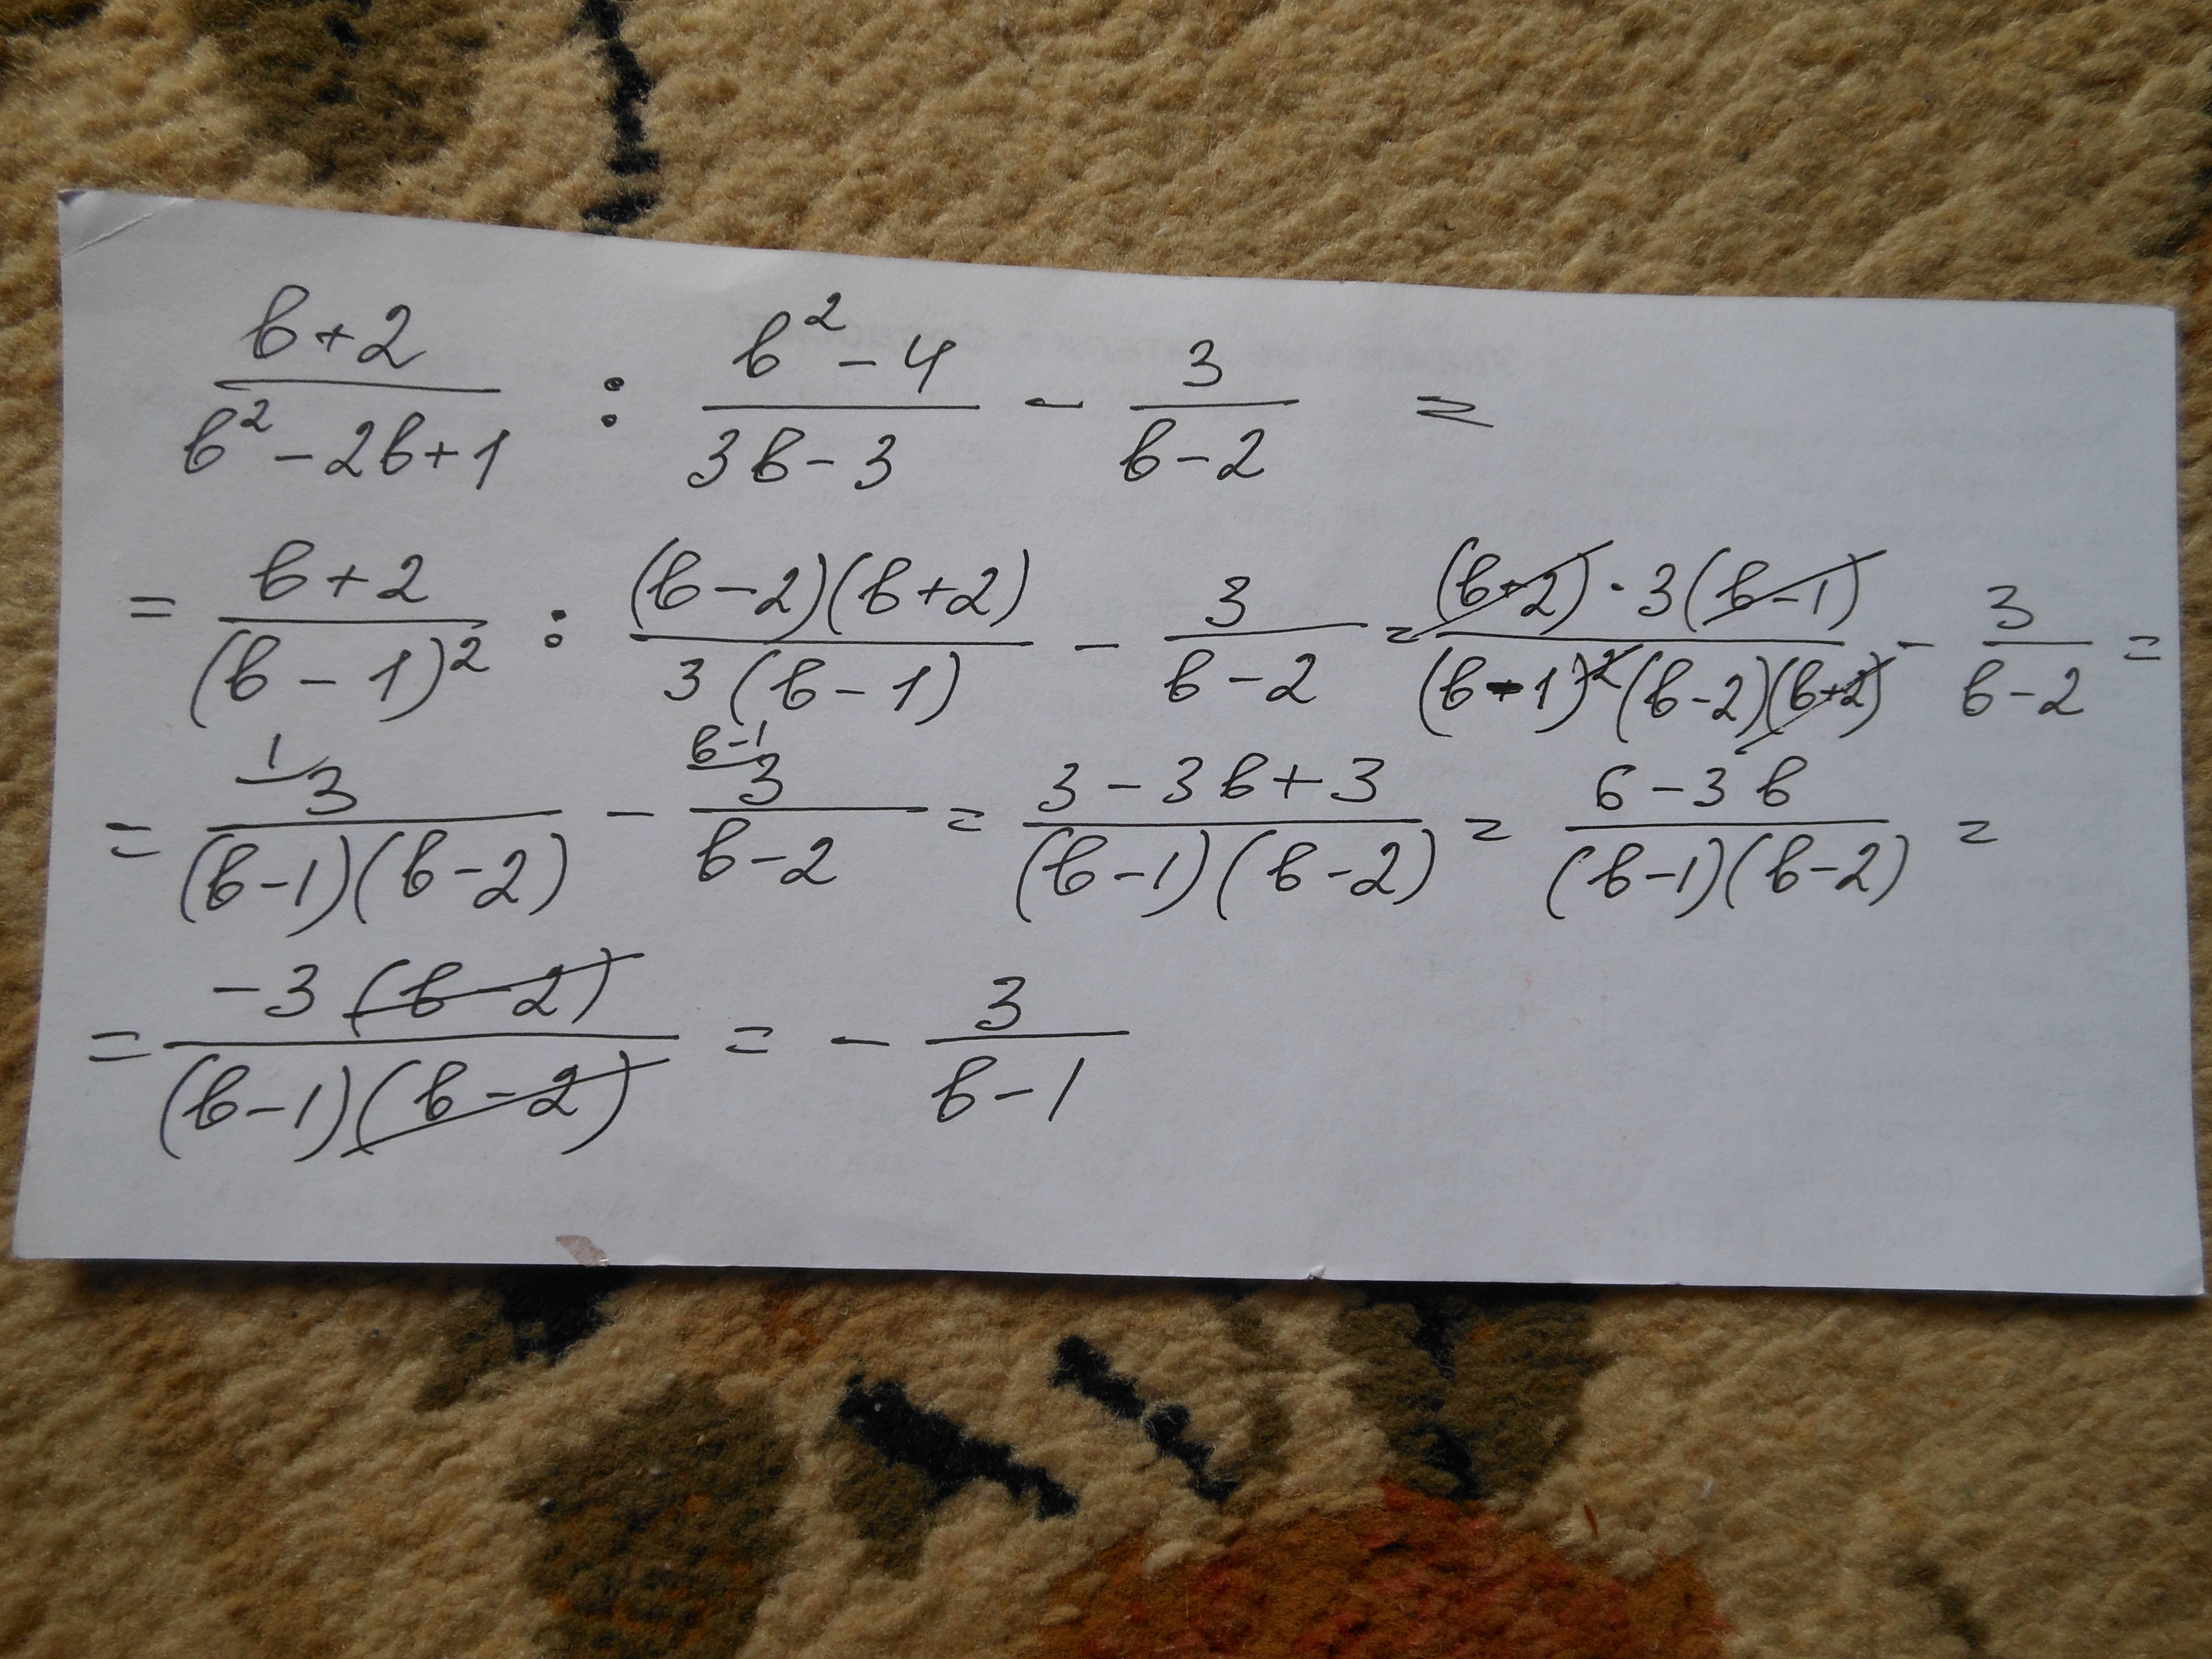 \frac{b+2}{b^2-2b+1} : \frac{b^2-4}{3b-3} - \frac{3}{b-2} =
= \frac{b+2}{(b-1)^2} : \frac{(b-2)(b+2)}{3(b-1)} - \frac{3}{b-2} = \frac{(b+2) \cdot 3(b-1)}{(b-1)^2(b-2)(b+2)} - \frac{3}{b-2} =
= \frac{^{1}3}{(b-1)(b-2)} - \frac{^{b-1}3}{b-2} = \frac{3-3b+3}{(b-1)(b-2)} = \frac{6-3b}{(b-1)(b-2)} =
= \frac{-3(b-2)}{(b-1)(b-2)} = -\frac{3}{b-1}